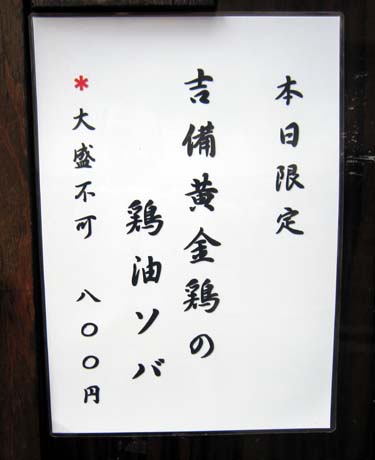 本日限定
吉備黄金鶏の
鶏油ソバ
*大盛不可 八〇〇円